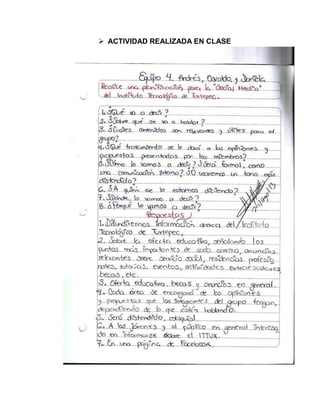 ➢ ACTIVIDAD REALIZADA EN CLASE
Equipo 4. Andrés, Osvaldo, y
Realice una planificación para la "Social Media"
del Instituto Tecnológico de Tuxtepec.
1. ¿Qué va a decir?
2. ¿Sobre qué se va a hablar?
3. ¿Cuáles contenidos son relevantes y útiles para el
grupo?
4. ¿Qué tratamiento se le dará a las opiniones y
propuestas presentadas por los miembros?
5. ¿Cómo lo vamos a decir? ¿De forma formal, como
una comunicación interna? ¿O usaremos un tono más
distendido?
6. ¿A quién se lo estamos diciendo?
7. ¿Dónde lo vamos a decir?
8. ¿Porqué le vamos a decir?
Respuestas
1. Difundiremos información acerca del Instituto
Tecnológico de Tuxtepec,
2. Sobre la oferta educativa, señalando los
puntos más importantes de cada carrera, anuncios
relevantes sobre servicio social, residencias profesio
nales, tutorías, eventos, actividades extraescolares,
becas, etc.
3. Oferta educativa, becas y anuncios en general.
4. Cada área se encargará de las opiniones
y propuestas que los integrantes del grupo tengan,
dependiendo de lo que estén hablando.
5. Será distendido, coloquial.
6. A los jóvenes y al público en general interesa
do en informarse sobre el ITTUX.
7. En una página de Facebook.